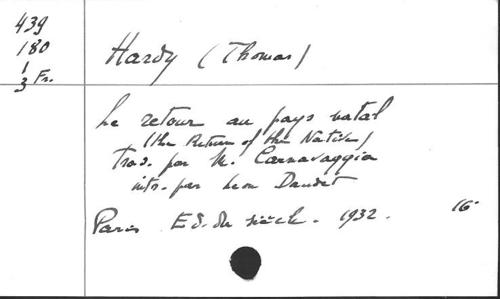 439
180
1
3 Fr.
Hardy (Thomas)
Le retour au pays natal
(the Return of the Native)
Trad. par M. Cannavaggia
intr. par Leon Daudet
Paris Ed. du siècle. 1932. 16°